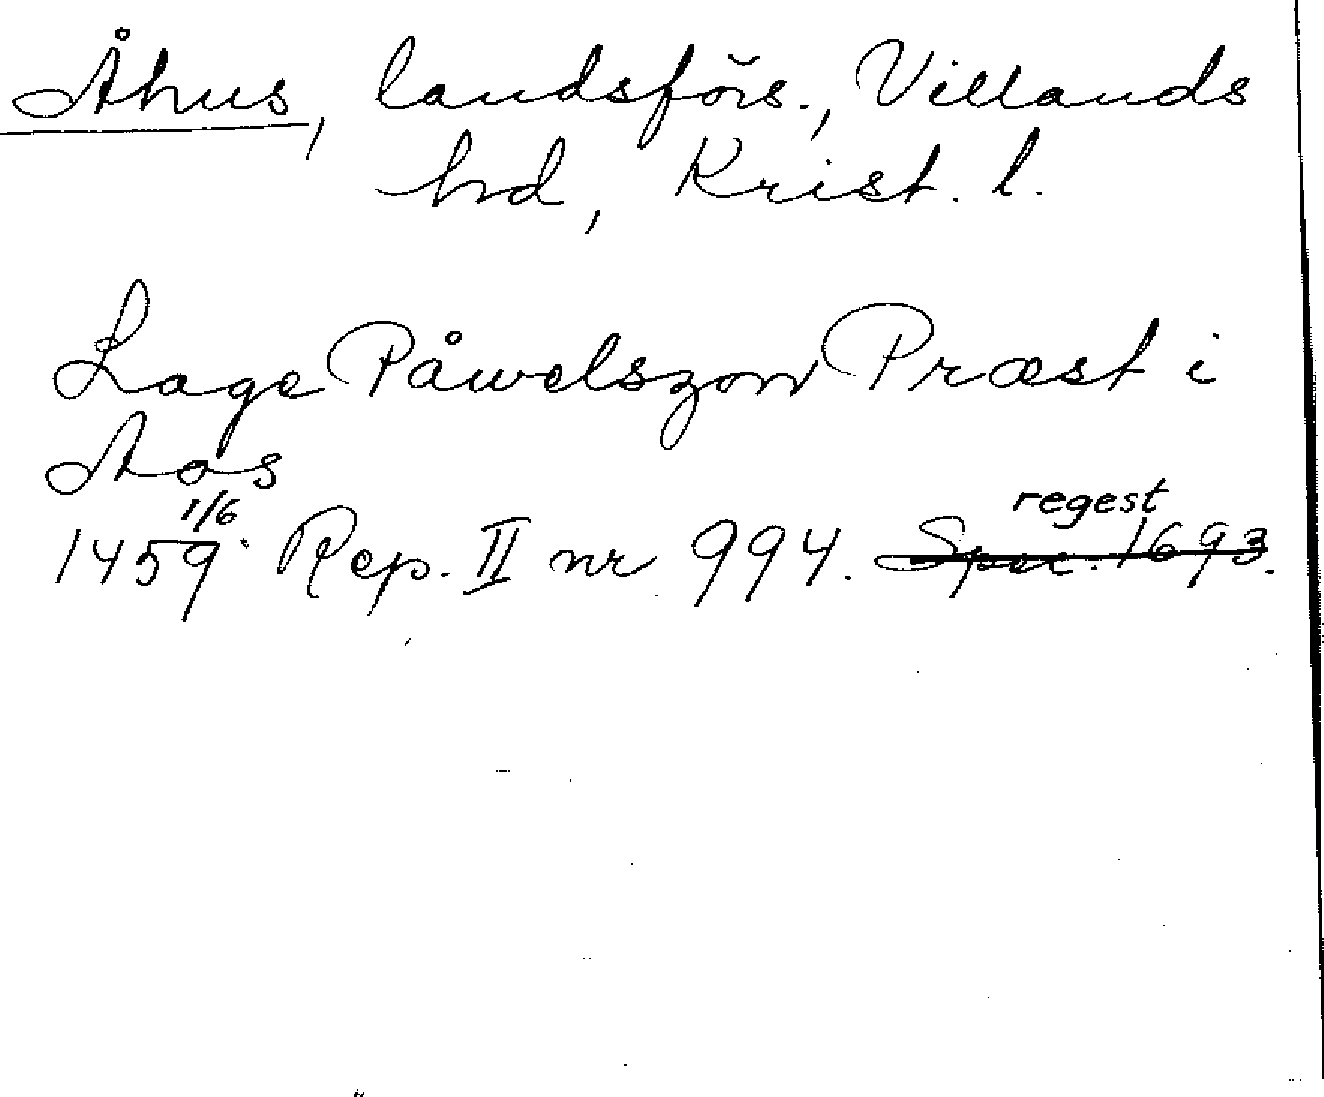 Åhus, landsförs., Villands
hd, Krist. l.
Lage Påwelszon Præst i
Aos
1/6 regest
1459. Rep. II nr 994. Spec. 1693.